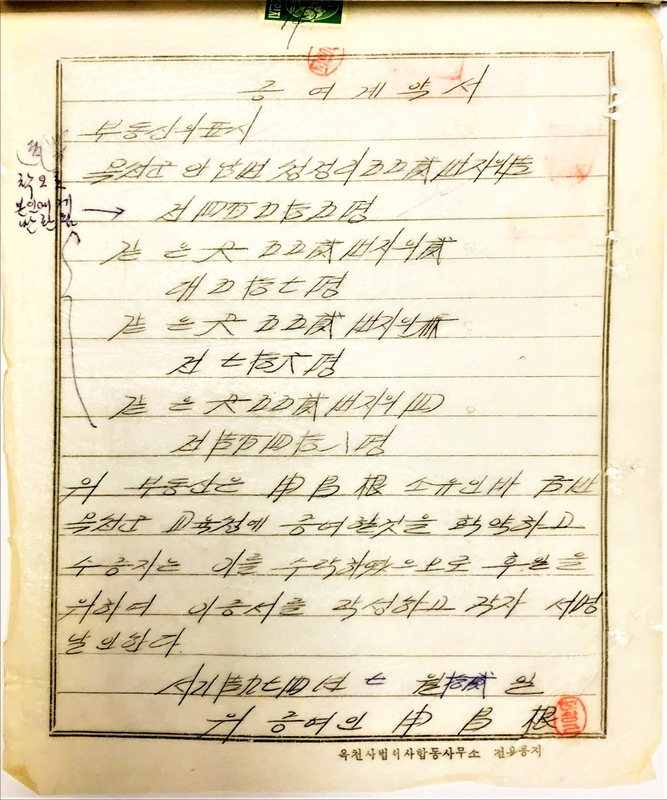 증여계약서
부동산의표시
옥천군 안남면 청정리 五五貳번지의壹
전 四百五拾五평
같은곳 五五貳번지의貳
대 五拾七평
같은곳 五五貳번지의參
전 七拾六평
같은곳 五五貳번지의四
전 壹百四拾八평
위 부동산은 申昌根 소유인바 금반
옥천군 교육청에 증여할것을 확약하고
수증자는 이를 수락하였으므로 후일을
위하여 이증서를 작성하고 각자 서명
날인한다
서기 壹九七四년 七월 拾貳일
위 증여인 申昌根
옥천사법서사합동사무소 전용용지
착오로
본인에게
반환됨